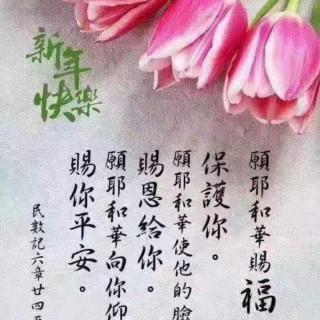 新年
快樂
願耶和華賜福
保護你。
願耶和華使他的臉
賜恩給你。
願耶和華向你仰
賜你平安。
民數記六章廿四至